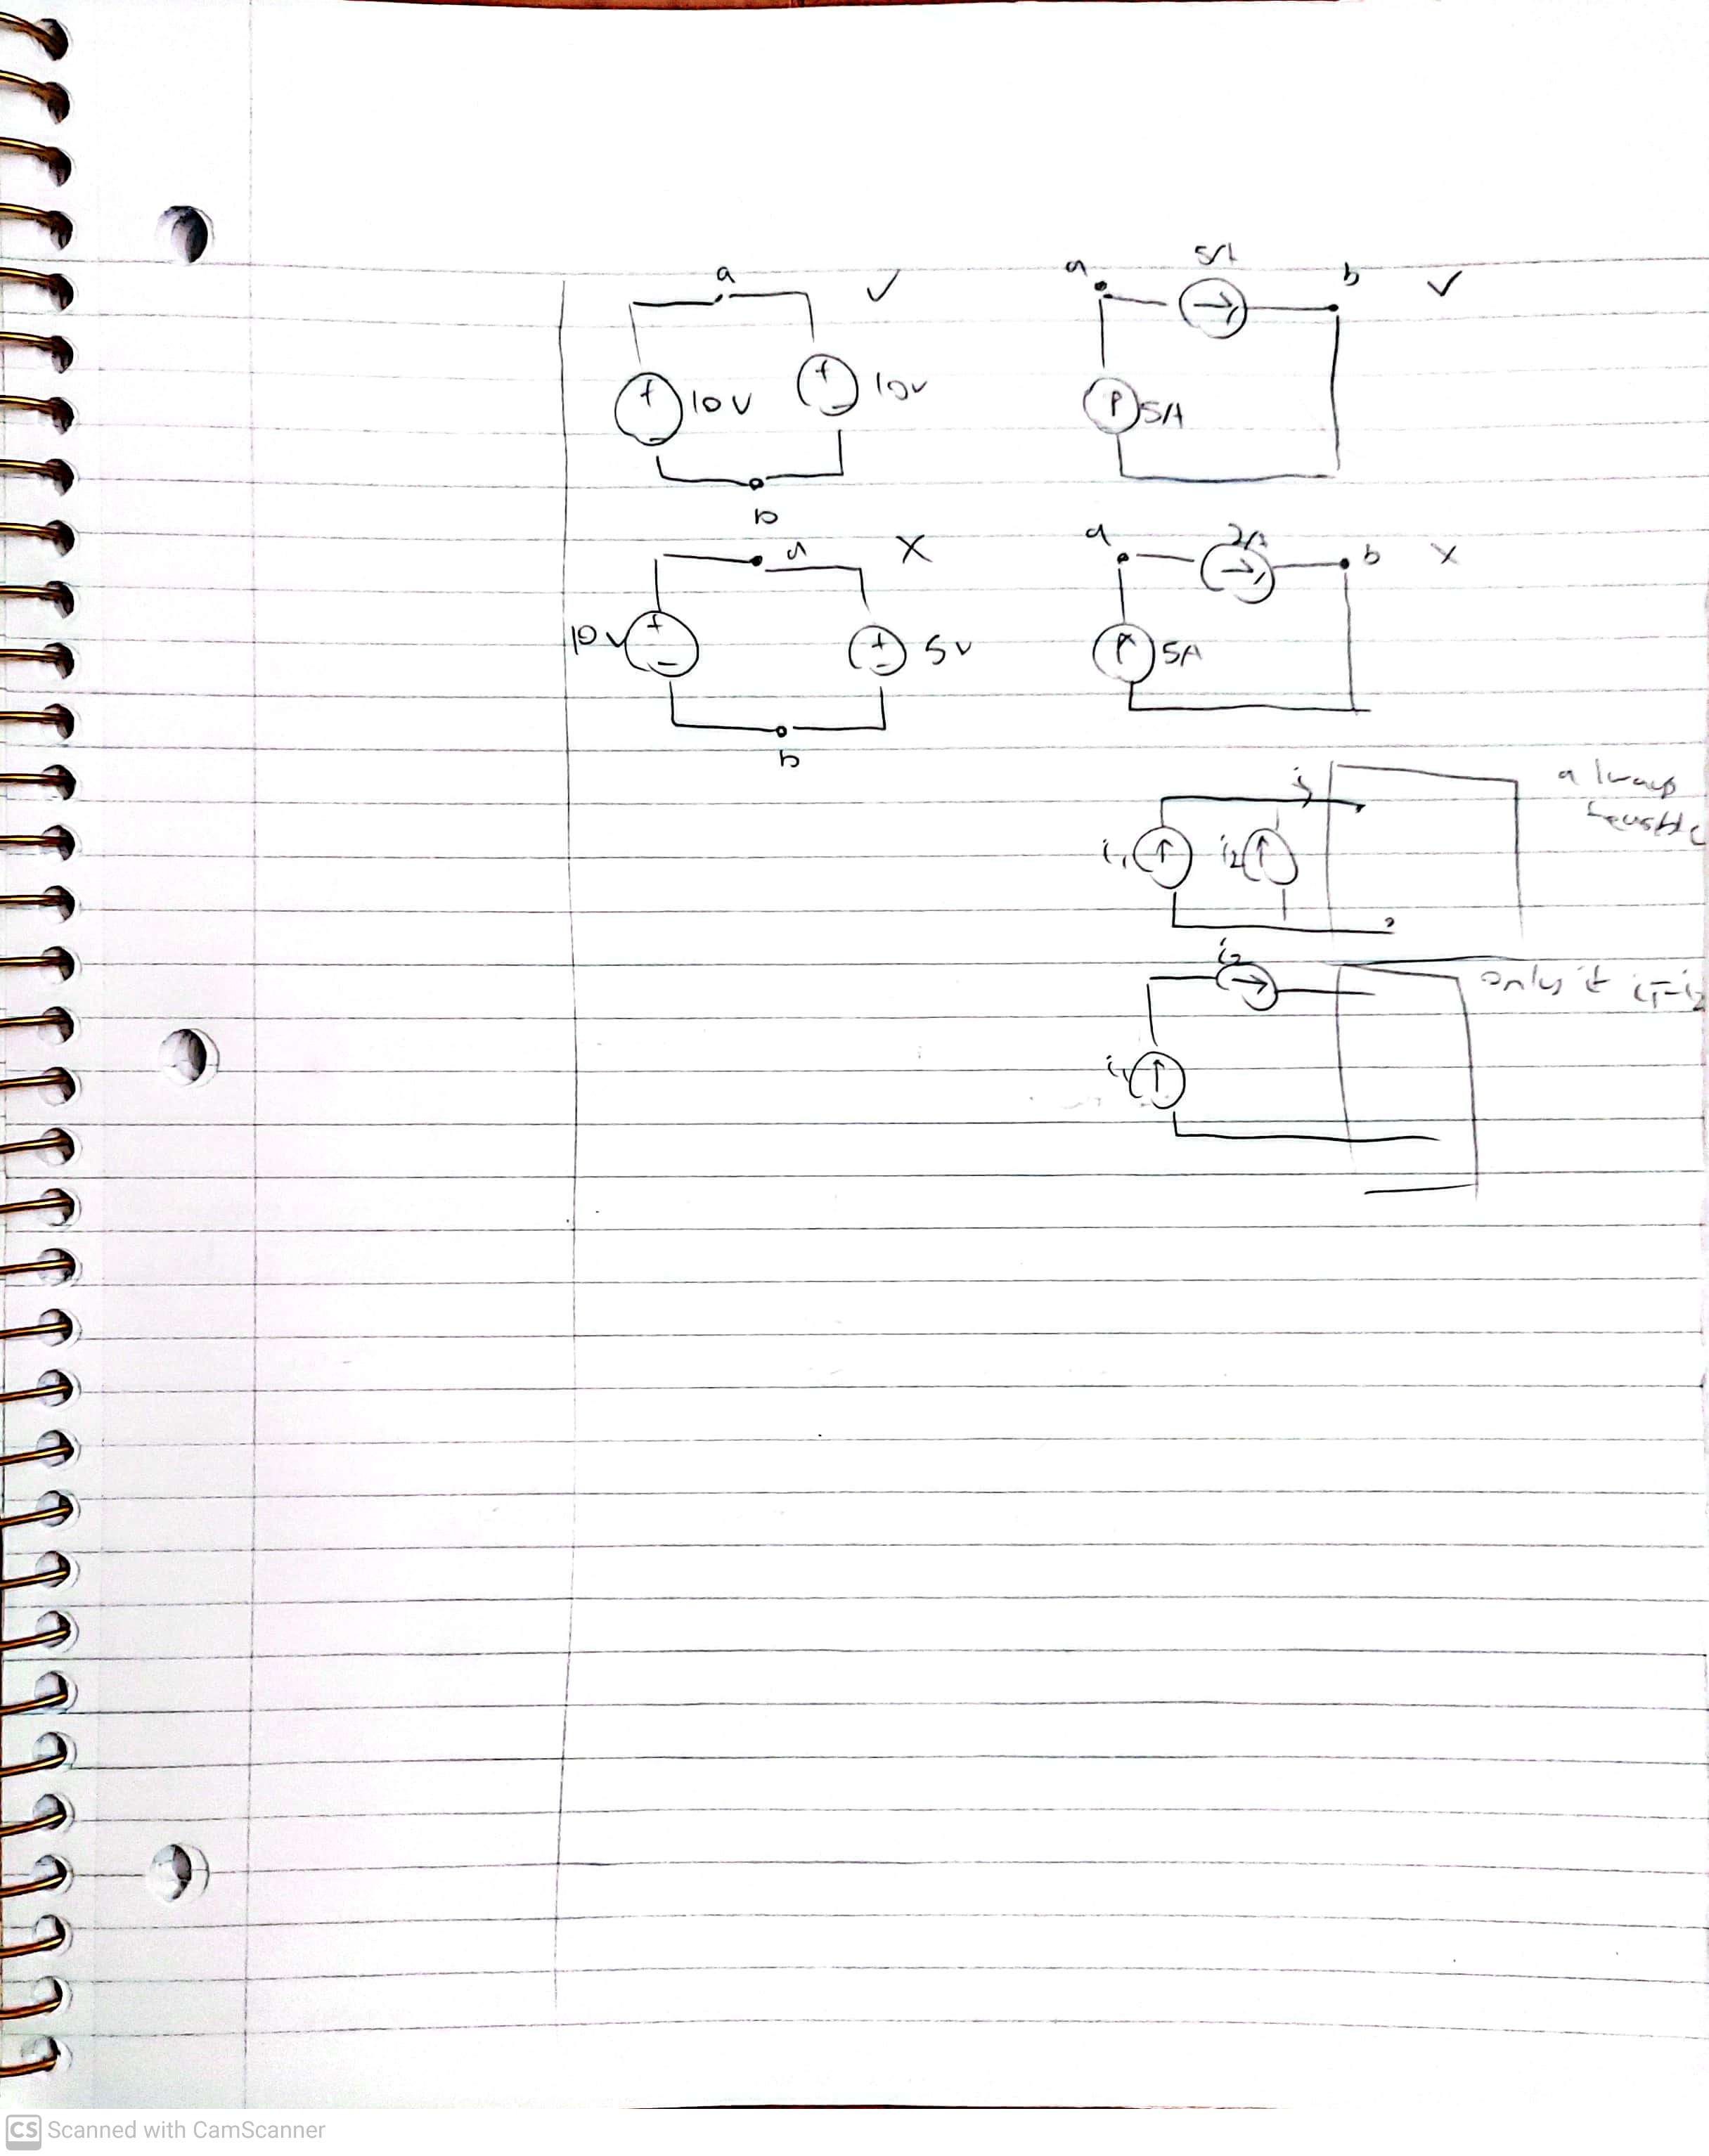 a ✓
10V
10V
b
a 5A b ✓
5A
a X
10V
5V
b
a 2A b X
5A
i always
feasible
i₁ i₂
i₂ only if i₁=i₂
i₁
CS Scanned with CamScanner